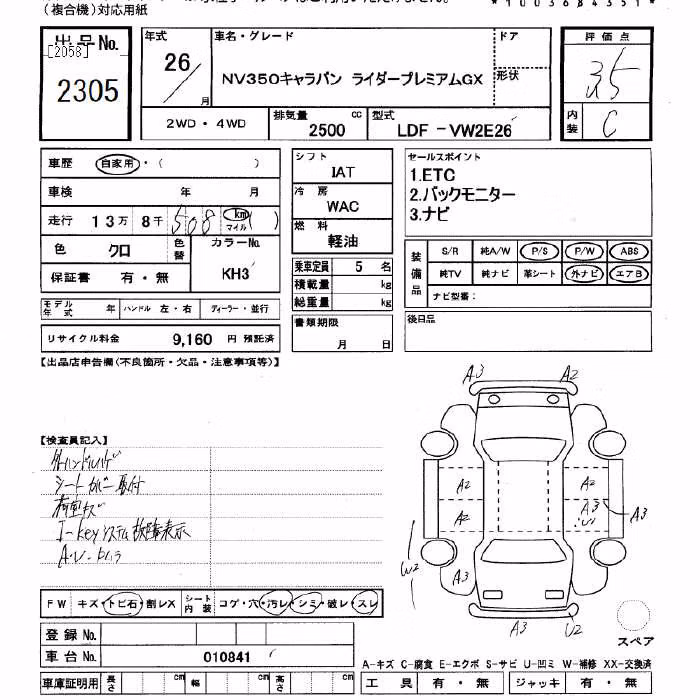 (複合機)対応用紙
*1003684351*
出品No.
[2058]
2305
年式
26
月
車名・グレード
NV350キャラバン ライダープレミアムGX
ドア
形状
2WD・4WD
排気量
cc
2500
型式
LDF-VW2E26
評価点
3.5
内装
C
車歴
自家用・( )
車検
年 月
走行
13万 8千 508 km ( )
マイル
色
クロ
色替
カラーNo.
KH3
保証書
有・無
モデル年式
年
ハンドル 左・右
ディーラー・並行
リサイクル料金
9,160 円 預託済
シフト
IAT
冷房
WAC
燃料
軽油
乗車定員 5 名
積載量 kg
総重量 kg
書類期限
月 日
セールスポイント
1.ETC
2.バックモニター
3.ナビ
装備品
S/R 純A/W P/S P/W ABS
純TV 純ナビ 革シート 外ナビ エアB
ナビ型番:
後日品
【出品店申告欄(不良箇所・欠品・注意事項等)】
【検査員記入】
シートカバー取付
荷室キズ
I-Keyシステム故障表示
A3
A2
A2
A2
A2
A3
U
A3
W2
A3
A3
U2
スペア
FW
キズ・トビ石・割レX
シート内装
コゲ・穴・汚レ・シミ・破レ・スレ
登録No.
車台No.
010841
車庫証明用
長さ cm
幅 cm
高さ cm
A-キズ C-腐食 E-エクボ S-サビ U-凹ミ W-補修 XX-交換済
工具 有・無
ジャッキ 有・無